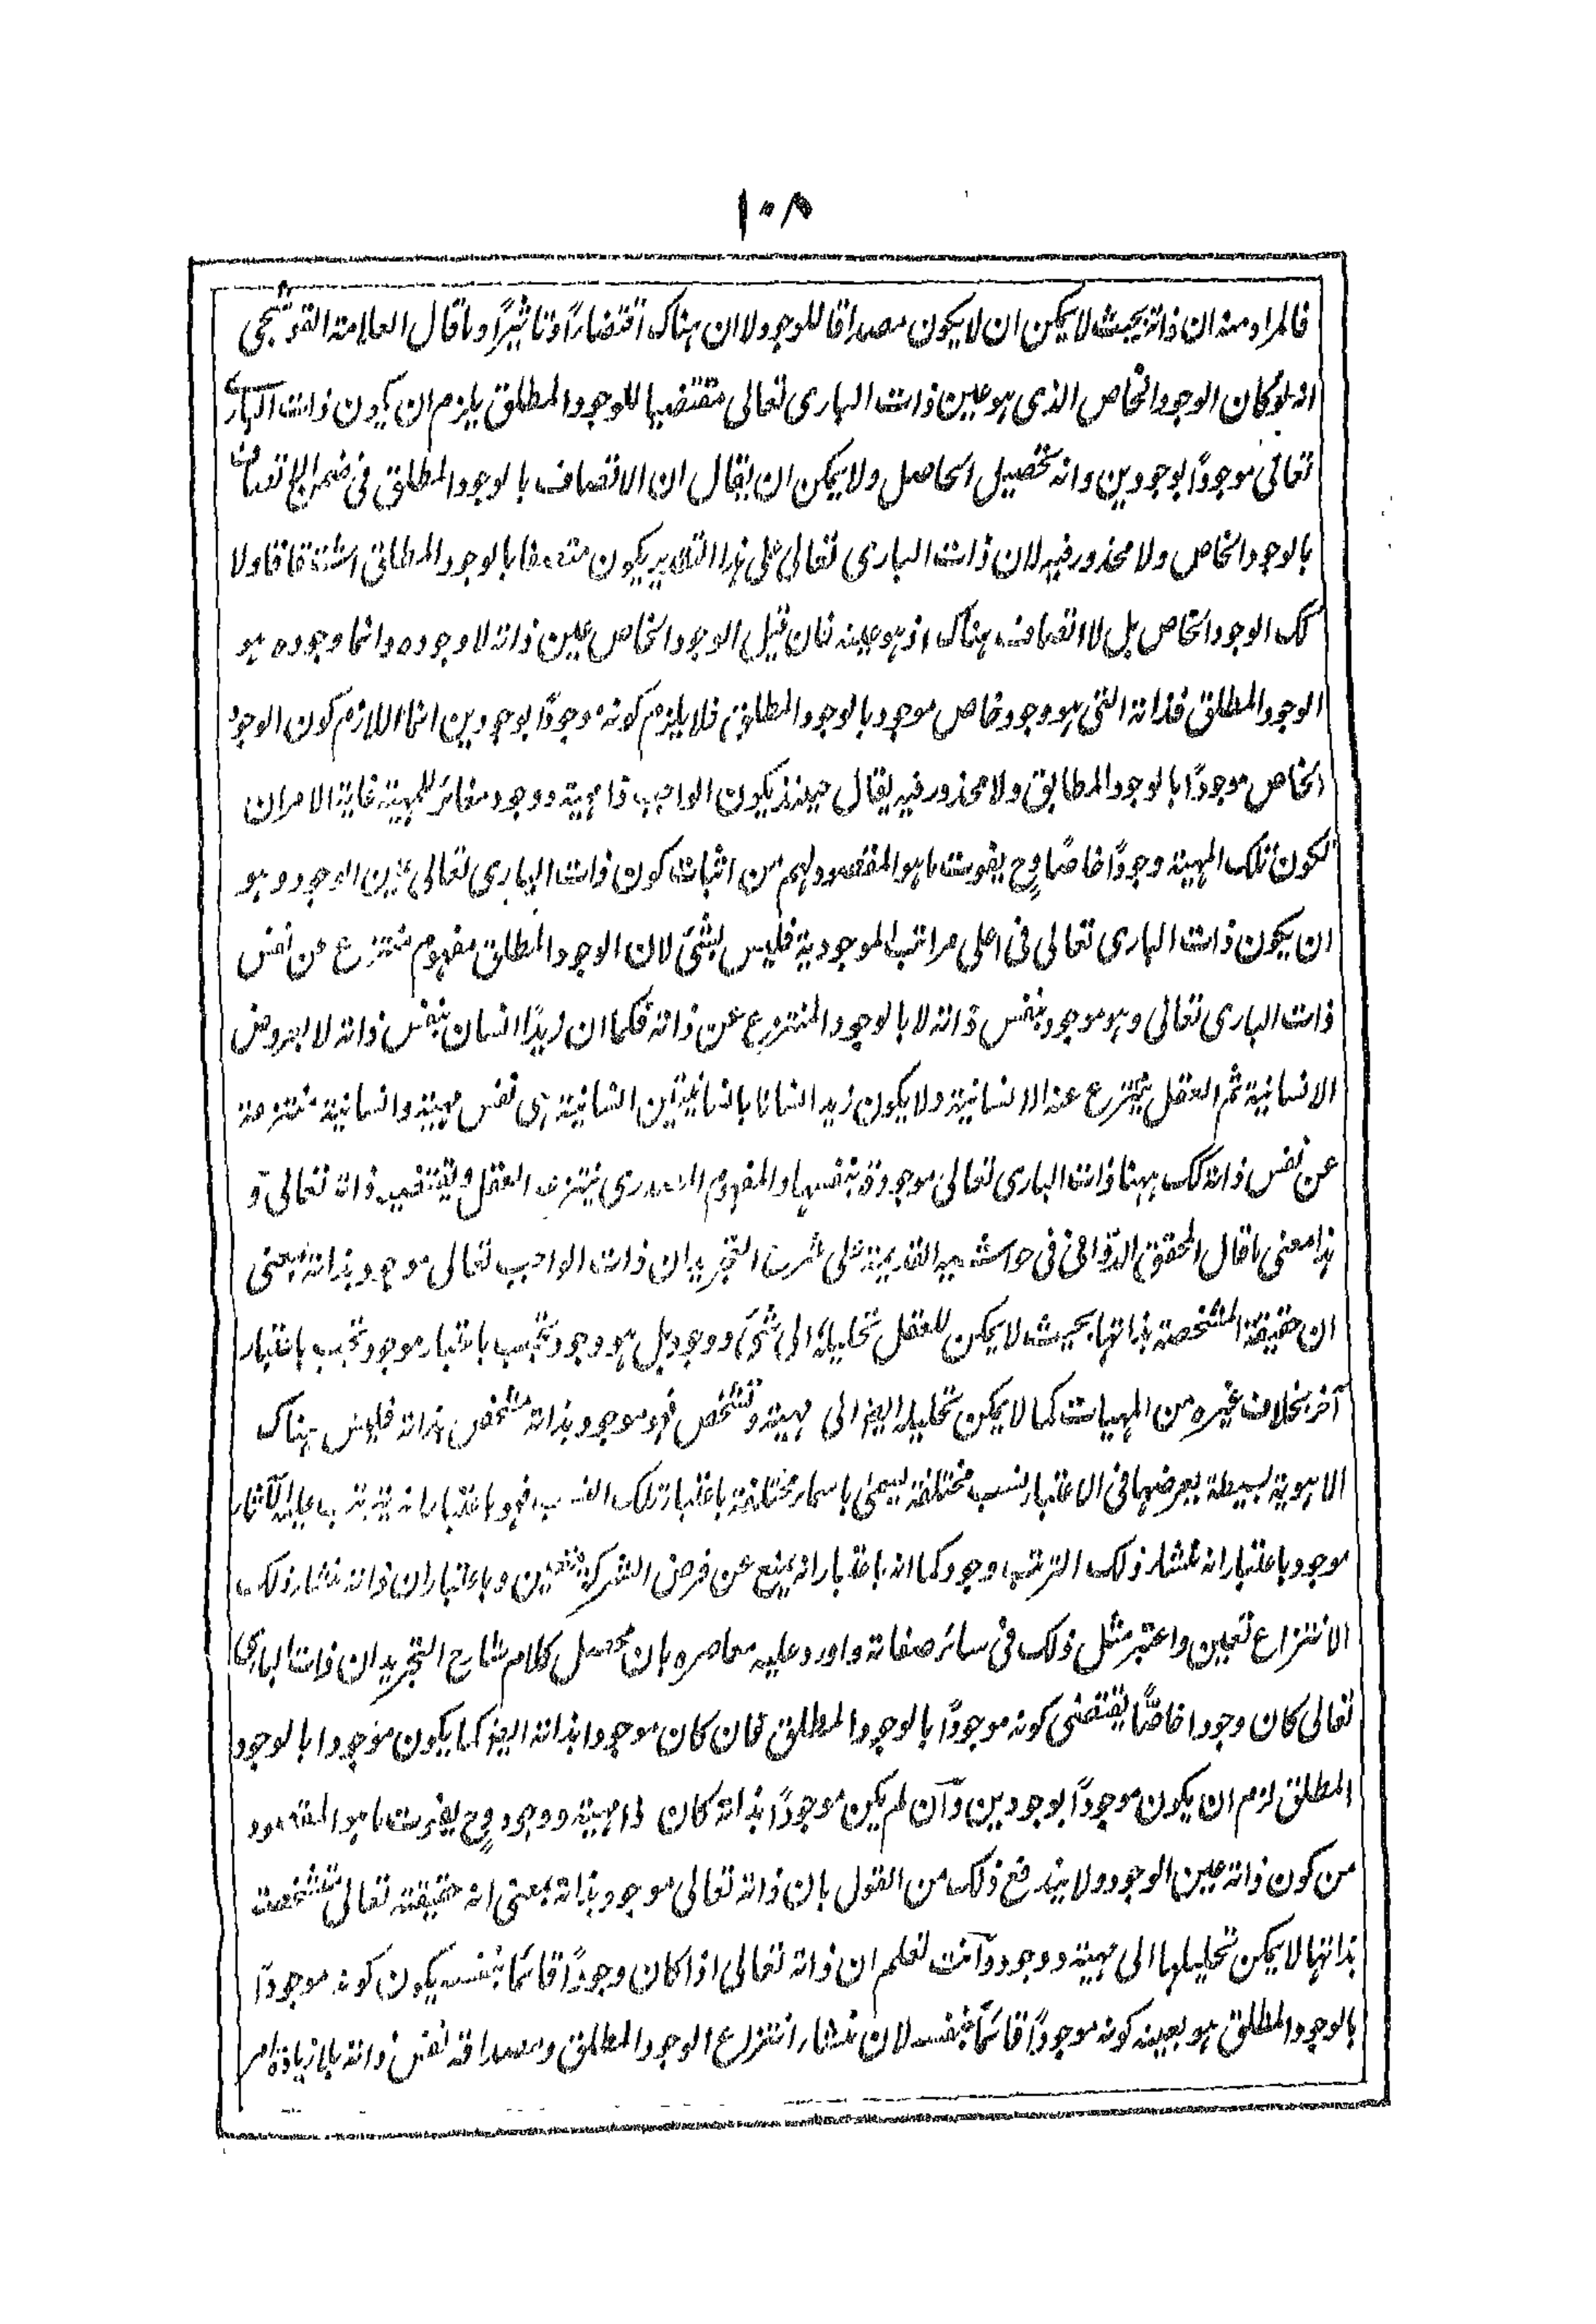 ١٠٨
فالمراد منه ان ذاته بحيث لا يمكن ان لا يكون مصداقا للوجود لا ان هناك اقتضاءً او تاثيرًا وما قال العلامة القوشجى
انه لو كان الوجود الخاص الذى هو عين ذات البارى تعالى مقتضيا للوجود المطلق يلزم ان يكون ذات البارى
تعالى موجودًا بوجودين وانه تحصيل الحاصل ولا يمكن ان يقال ان الاتصاف بالوجود المطلق فى ضمن الاتصاف
بالوجود الخاص ولا محذور فيه لان ذات البارى تعالى على هذا التقدير يكون متصفا بالوجود المطلق اشتقاقا ولا
كك الوجود الخاص بل لا اتصاف هناك اذ هو عينه فان قيل الوجود الخاص عين ذاته لا وجوده وانما وجوده هو
الوجود المطلق فذاته التى هو وجود خاص موجود بالوجود المطلق فلا يلزم كونه موجودًا بوجودين انما اللازم كون الوجود
الخاص موجودًا بالوجود المطلق ولا محذور فيه يقال حينئذ يكون الواجب ذا مهية ووجود مغائر للمهية غاية الامر ان
تكون تلك المهية وجودًا خاصًا وح يفوت ما هو المقصود لهم من اثبات كون ذات البارى تعالى عين الوجود وهو
ان يكون ذات البارى تعالى فى اعلى مراتب الموجودية فليس بشئ لان الوجود المطلق مفهوم منتزع عن نفس
ذات البارى تعالى وهو موجود بنفس ذاته لا بالوجود المنتزع عن ذاته فكما ان زيدًا انسان بنفس ذاته لا بعروض
الانسانية ثم العقل ينتزع عنه الانسانية ولا يكون زيد انسانا بانسانيتين انسانية هى نفس مهيته وانسانية منتزعة
عن نفس ذاته كك ههنا ذات البارى تعالى موجودة بنفسها والمفهوم المصدرى ينتزعه العقل ويقتضيه ذاته تعالى و
هذا معنى ما قال المحقق الدوانى فى حواشيه القديمة على شرح التجريد ان ذات الواجب تعالى موجود بذاته بمعنى
ان حقيقته المشخصة بذاتها بحيث لا يمكن للعقل تحليله الى شئ ووجود بل هو وجود بحسب باعتبار موجود بحسب باعتبار
آخر بخلاف غيره من المهيات كما لا يمكن تحليله ايضا الى مهية وتشخص فهو موجود بذاته مشخص بذاته فليس هناك
الا هوية بسيطة يعرضها فى الاعتبار نسب مختلفة يسمى باسماء مختلفة باعتبار تلك النسب فهو باعتبار انه يترتب عليه الآثار
موجود باعتبار انه منشاء ذلك الترتب وجود كما انه باعتبار انه يمنع عن فرض الشركة متعين وباعتبار ان ذاته منشاء ذلك
الانتزاع تعين واعتبر مثل ذلك فى سائر صفاته واورد عليه معاصره بان محصل كلام شارح التجريد ان ذات البارى
تعالى كان وجودا خاصًا يقتضى كونه موجودًا بالوجود المطلق فان كان موجودا بذاته ايضا كما يكون موجودا بالوجود
المطلق لزم ان يكون موجودًا بوجودين وان لم يكن موجودًا بذاته كان ذا مهية ووجود وح يفوت ما هو المقصود
من كون ذاته عين الوجود ولا يندفع ذلك من القول بان ذاته تعالى موجود بذاته بمعنى انه حقيقته تعالى متشخصة
بذاتها لا يمكن تحليلها الى مهية ووجود وانت تعلم ان ذاته تعالى اذا كان وجودًا قائمًا بنفسه يكون كونه موجودًا
بالوجود المطلق هو بعينه كونه موجودًا قائمًا بنفسه لان منشاء انتزاع الوجود المطلق ومصداقه نفس ذاته بلا زيادة امر